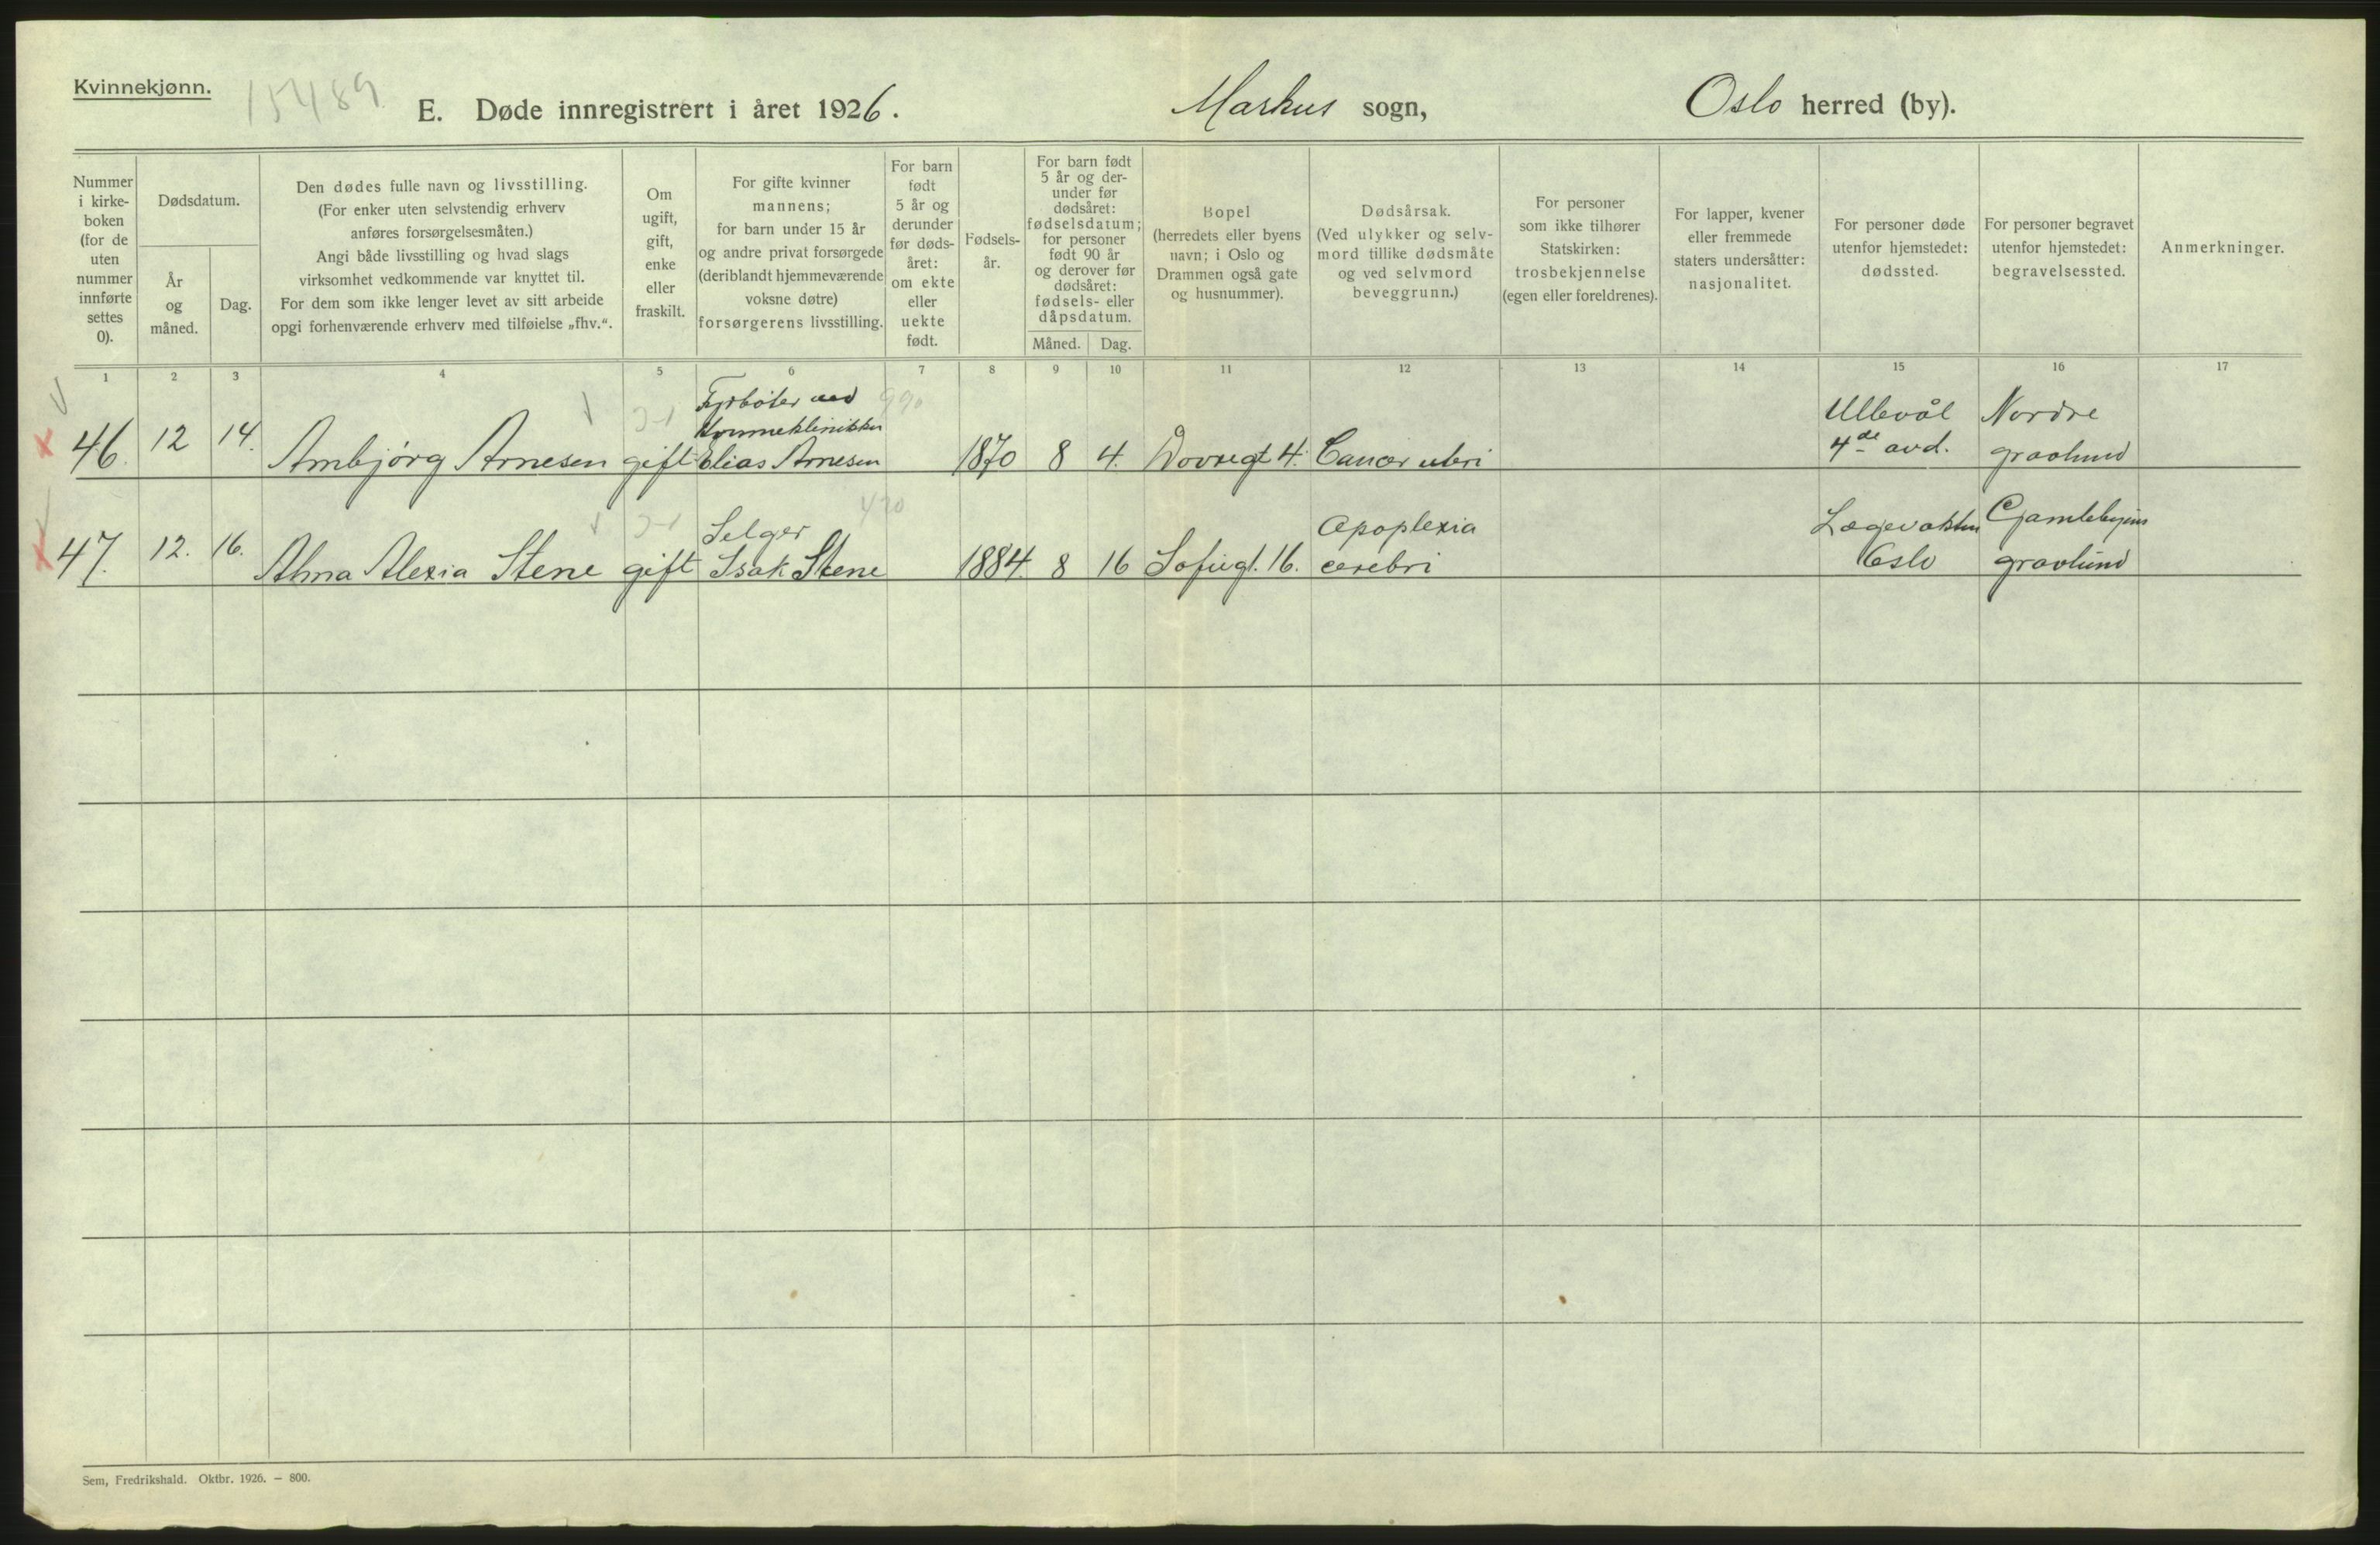 Kvinnekjønn.
15489
E. Døde innregistrert i året 1926.
Markus sogn,
Oslo herred (by).
Nummer
i kirke-
boken
(for de
uten
nummer
innførte
settes
0).
Dødsdatum.
År
og
måned.
Dag.
Den dødes fulle navn og livsstilling.
(For enker uten selvstendig erhverv
anføres forsørgelsesmåten.)
Angi både livsstilling og hvad slags
virksomhet vedkommende var knyttet til.
For dem som ikke lenger levet av sitt arbeide
opgi forhenværende erhverv med tilføielse „fhv.“.
Om
ugift,
gift,
enke
eller
fraskilt.
For gifte kvinner
mannens;
for barn under 15 år
og andre privat forsørgede
(deriblandt hjemmeværende
voksne døtre)
forsørgerens livsstilling.
For barn
født
5 år og
derunder
før døds-
året:
om ekte
eller
uekte
født.
Fødsels-
år.
For barn født
5 år og der-
under før
dødsåret:
fødselsdatum;
for personer
født 90 år
og derover før
dødsåret:
fødsels- eller
dåpsdatum.
Måned. Dag.
Bopel
(herredets eller byens
navn; i Oslo og
Drammen også gate
og husnummer).
Dødsårsak.
(Ved ulykker og selv-
mord tillike dødsmåte
og ved selvmord
beveggrunn.)
For personer
som ikke tilhører
Statskirken:
trosbekjennelse
(egen eller foreldrenes).
For lapper, kvener
eller fremmede
staters undersåtter:
nasjonalitet.
For personer døde
utenfor hjemstedet:
dødssted.
For personer begravet
utenfor hjemstedet:
begravelsessted.
Anmerkninger.
1 2 3 4 5 6 7 8 9 10 11 12 13 14 15 16 17
Fyrbøter ved 990
Kvinneklinikken
Ullevål Nordre
46. 12 14. Ambjørg Arnesen gift Elias Arnesen 1870 8 4. Dovregt 4. Cancer uteri 4de avd. gravlund
Selger 420
Apoplexia
Lægevakten Gamlebyens
47. 12. 16. Alma Alexia Stene gift Isak Stene 1884. 8 16 Sofiegt. 16. cerebri Oslo gravlund
Sem, Fredrikshald. Oktbr. 1926. – 800.